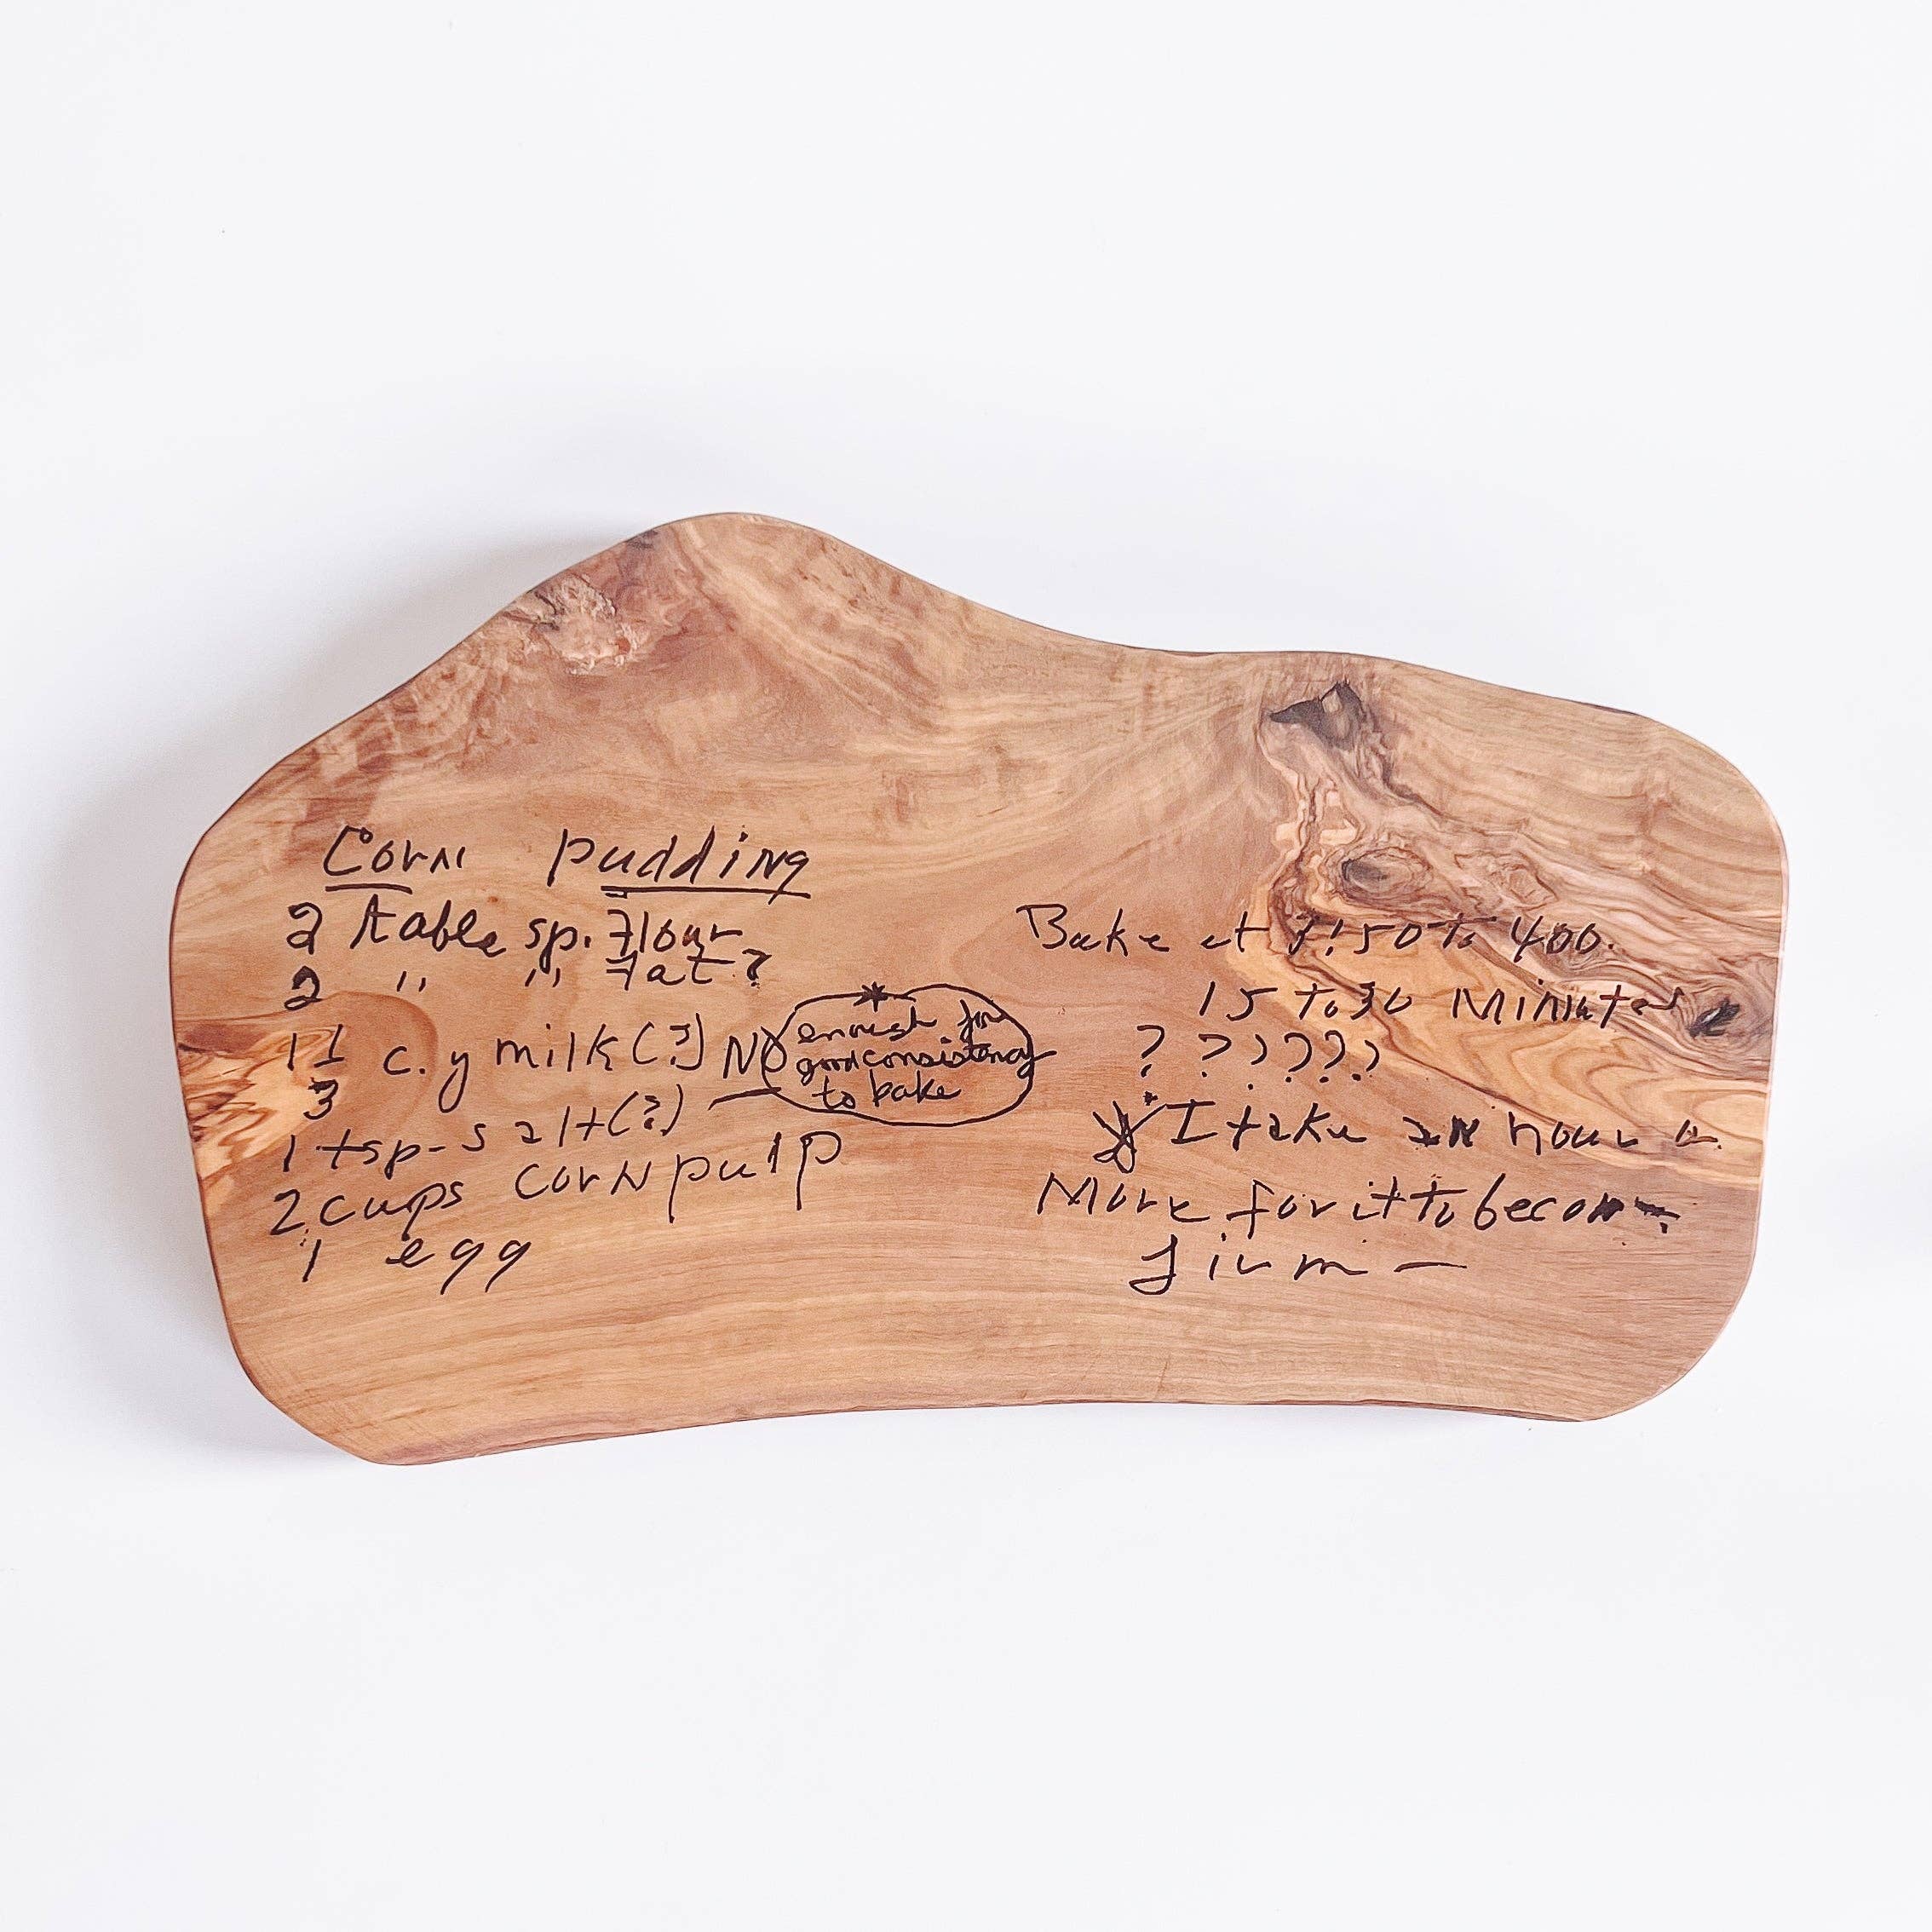 Corn pudding
2 table sp. Flour
2 " " Fat?
1 1/3 c. y milk (?) NO
* enough for
good consistency
to bake
1 tsp-salt(?) —
2 cups corn pulp
1 egg
Bake at 350 to 400.
15 to 30 Minutes
? ?????
* I take an hour or
More for it to become
firm —